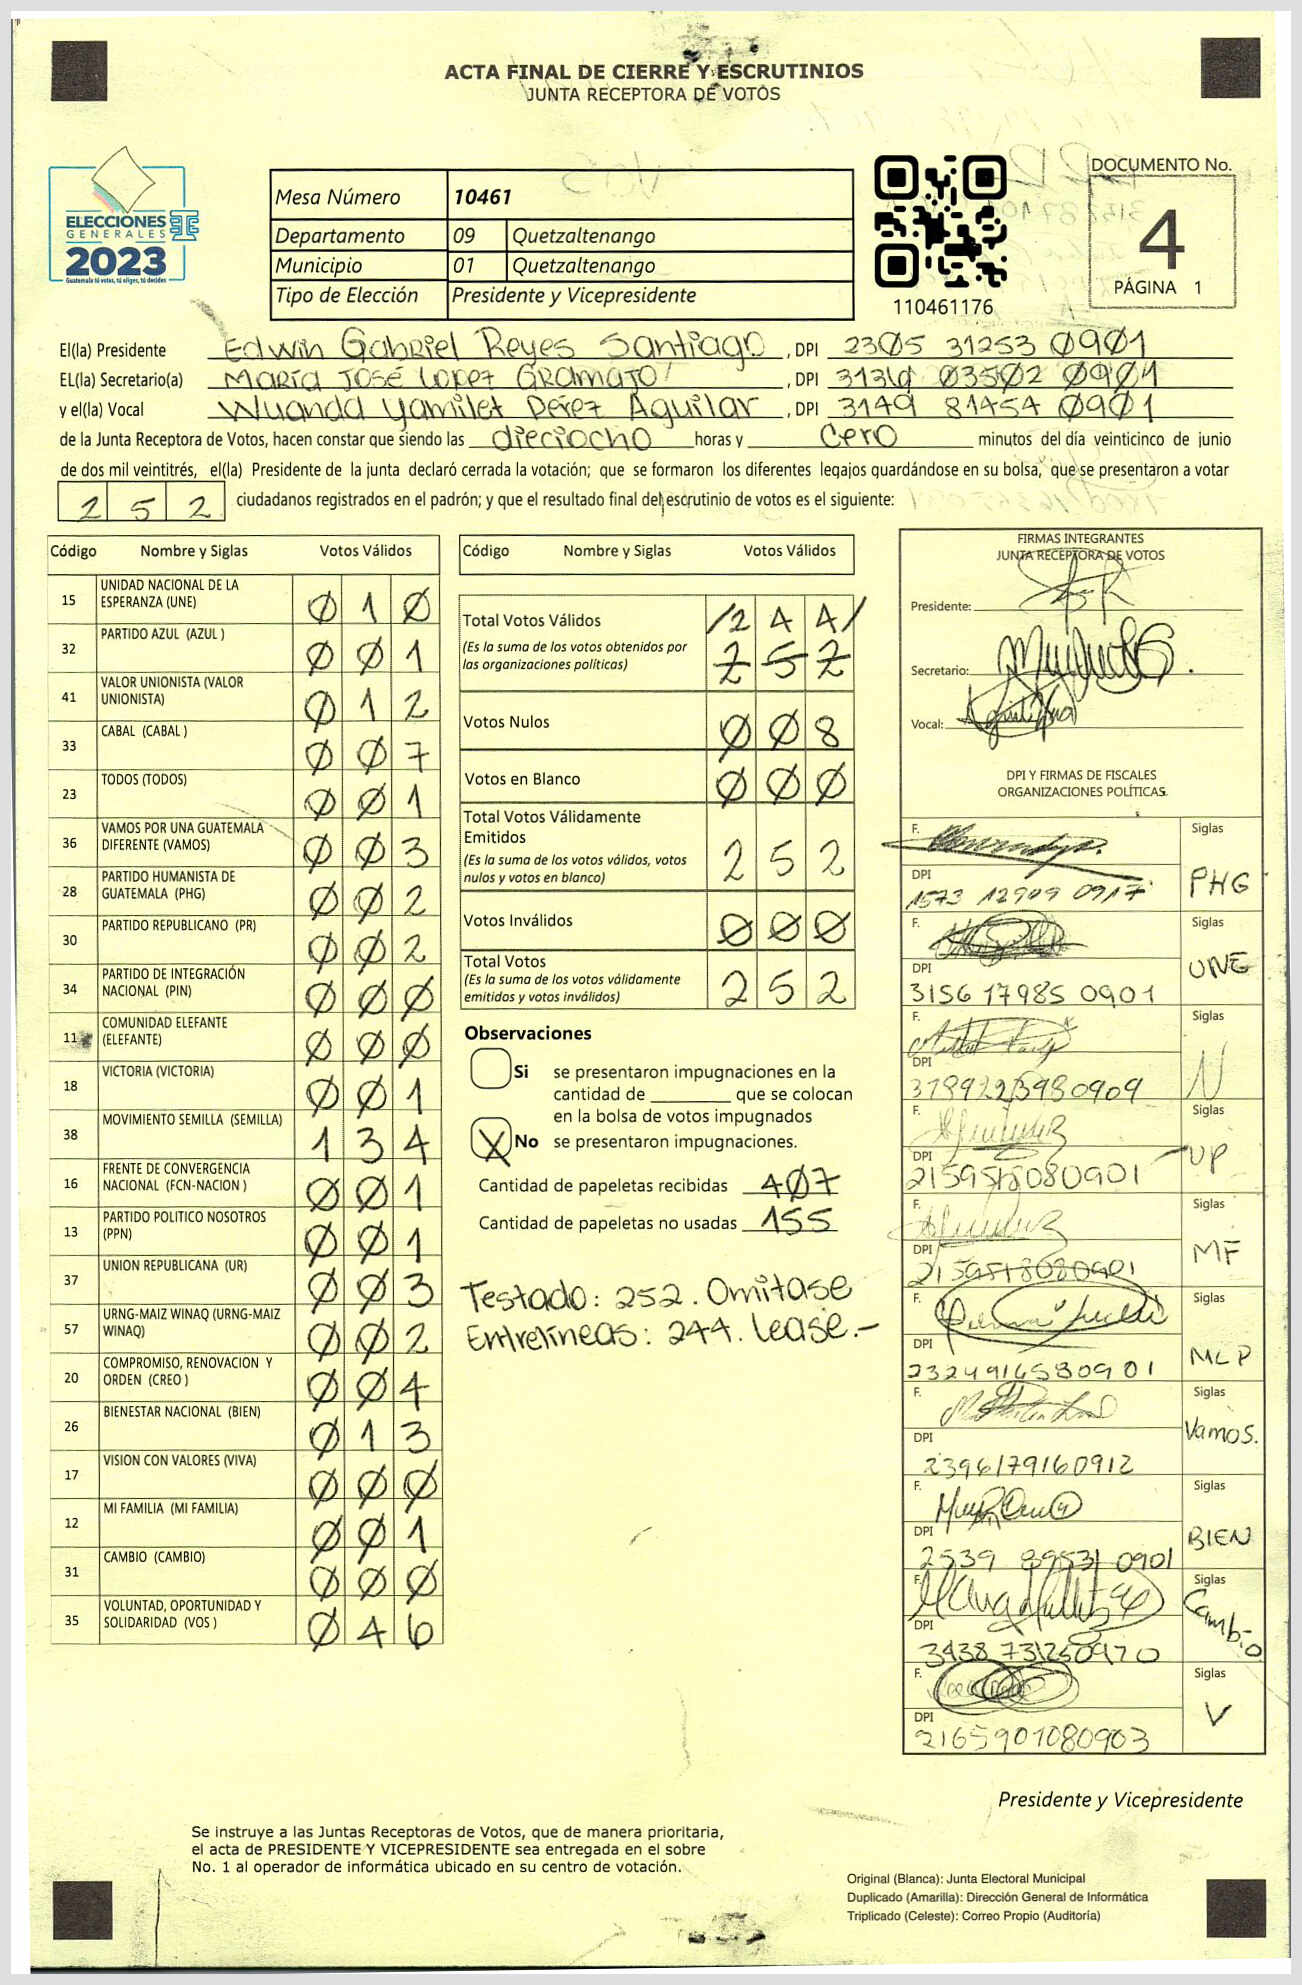 ACTA FINAL DE CIERRE Y ESCRUTINIOS
JUNTA RECEPTORA DE VOTOS
ELECCIONES
GENERALES
2023
Guatemala tú votas, tú eliges, tú decides
Mesa Número 10461
Departamento 09 Quetzaltenango
Municipio 01 Quetzaltenango
Tipo de Elección Presidente y Vicepresidente
110461176
DOCUMENTO No.
4
PÁGINA 1
El(la) Presidente Edwin Gabriel Reyes Santiago, DPI 2305 31253 0901
EL(la) Secretario(a) María José López Gramajo, DPI 03502 0901
y el(la) Vocal Wuanda Yamilet Pérez Aguilar, DPI 3149 81454 0901
de la Junta Receptora de Votos, hacen constar que siendo las dieciocho horas y cero minutos del día veinticinco de junio
de dos mil veintitrés, el(la) Presidente de la junta declaró cerrada la votación; que se formaron los diferentes legajos guardándose en su bolsa, que se presentaron a votar
252 ciudadanos registrados en el padrón; y que el resultado final del escrutinio de votos es el siguiente:
Código Nombre y Siglas Votos Válidos
15 UNIDAD NACIONAL DE LA ESPERANZA (UNE) 010
32 PARTIDO AZUL (AZUL ) 001
41 VALOR UNIONISTA (VALOR UNIONISTA) 012
33 CABAL (CABAL ) 007
23 TODOS (TODOS) 001
36 VAMOS POR UNA GUATEMALA DIFERENTE (VAMOS) 003
28 PARTIDO HUMANISTA DE GUATEMALA (PHG) 002
30 PARTIDO REPUBLICANO (PR) 002
34 PARTIDO DE INTEGRACIÓN NACIONAL (PIN) 000
11 COMUNIDAD ELEFANTE (ELEFANTE) 000
18 VICTORIA (VICTORIA) 001
38 MOVIMIENTO SEMILLA (SEMILLA) 134
16 FRENTE DE CONVERGENCIA NACIONAL (FCN-NACION ) 001
13 PARTIDO POLITICO NOSOTROS (PPN) 001
37 UNION REPUBLICANA (UR) 003
57 URNG-MAIZ WINAQ (URNG-MAIZ WINAQ) 002
20 COMPROMISO, RENOVACION Y ORDEN (CREO ) 004
26 BIENESTAR NACIONAL (BIEN) 013
17 VISION CON VALORES (VIVA) 000
12 MI FAMILIA (MI FAMILIA) 001
31 CAMBIO (CAMBIO) 000
35 VOLUNTAD, OPORTUNIDAD Y SOLIDARIDAD (VOS ) 046
Código Nombre y Siglas Votos Válidos
Total Votos Válidos /244/
(Es la suma de los votos obtenidos por las organizaciones políticas) 252
Votos Nulos 008
Votos en Blanco 000
Total Votos Válidamente Emitidos
(Es la suma de los votos válidos, votos nulos y votos en blanco) 252
Votos Inválidos 000
Total Votos
(Es la suma de los votos válidamente emitidos y votos inválidos) 252
Observaciones
Si se presentaron impugnaciones en la
cantidad de ________ que se colocan
en la bolsa de votos impugnados
X No se presentaron impugnaciones.
Cantidad de papeletas recibidas 407
Cantidad de papeletas no usadas 155
Testado: 252. Omitase
Entrelíneas: 244. Lease.-
FIRMAS INTEGRANTES
JUNTA RECEPTORA DE VOTOS
Presidente:
Secretario:
Vocal:
DPI Y FIRMAS DE FISCALES
ORGANIZACIONES POLÍTICAS
F. Siglas
DPI 1573 12909 0917 PHG
F. Siglas
DPI 3156 17985 0901 UNE
F. Siglas
DPI N
F. Siglas
DPI UP
F. Siglas
DPI MF
F. Siglas
DPI 2324916580901 MLP
F. Siglas
DPI 2396179160912 Vamos.
F. Siglas
DPI 2539 89531 0901 BIEN
F. Siglas
DPI Cambio
F. Siglas
DPI 2165901080903 V
Presidente y Vicepresidente
Se instruye a las Juntas Receptoras de Votos, que de manera prioritaria,
el acta de PRESIDENTE Y VICEPRESIDENTE sea entregada en el sobre
No. 1 al operador de informática ubicado en su centro de votación.
Original (Blanca): Junta Electoral Municipal
Duplicado (Amarilla): Dirección General de Informática
Triplicado (Celeste): Correo Propio (Auditoría)